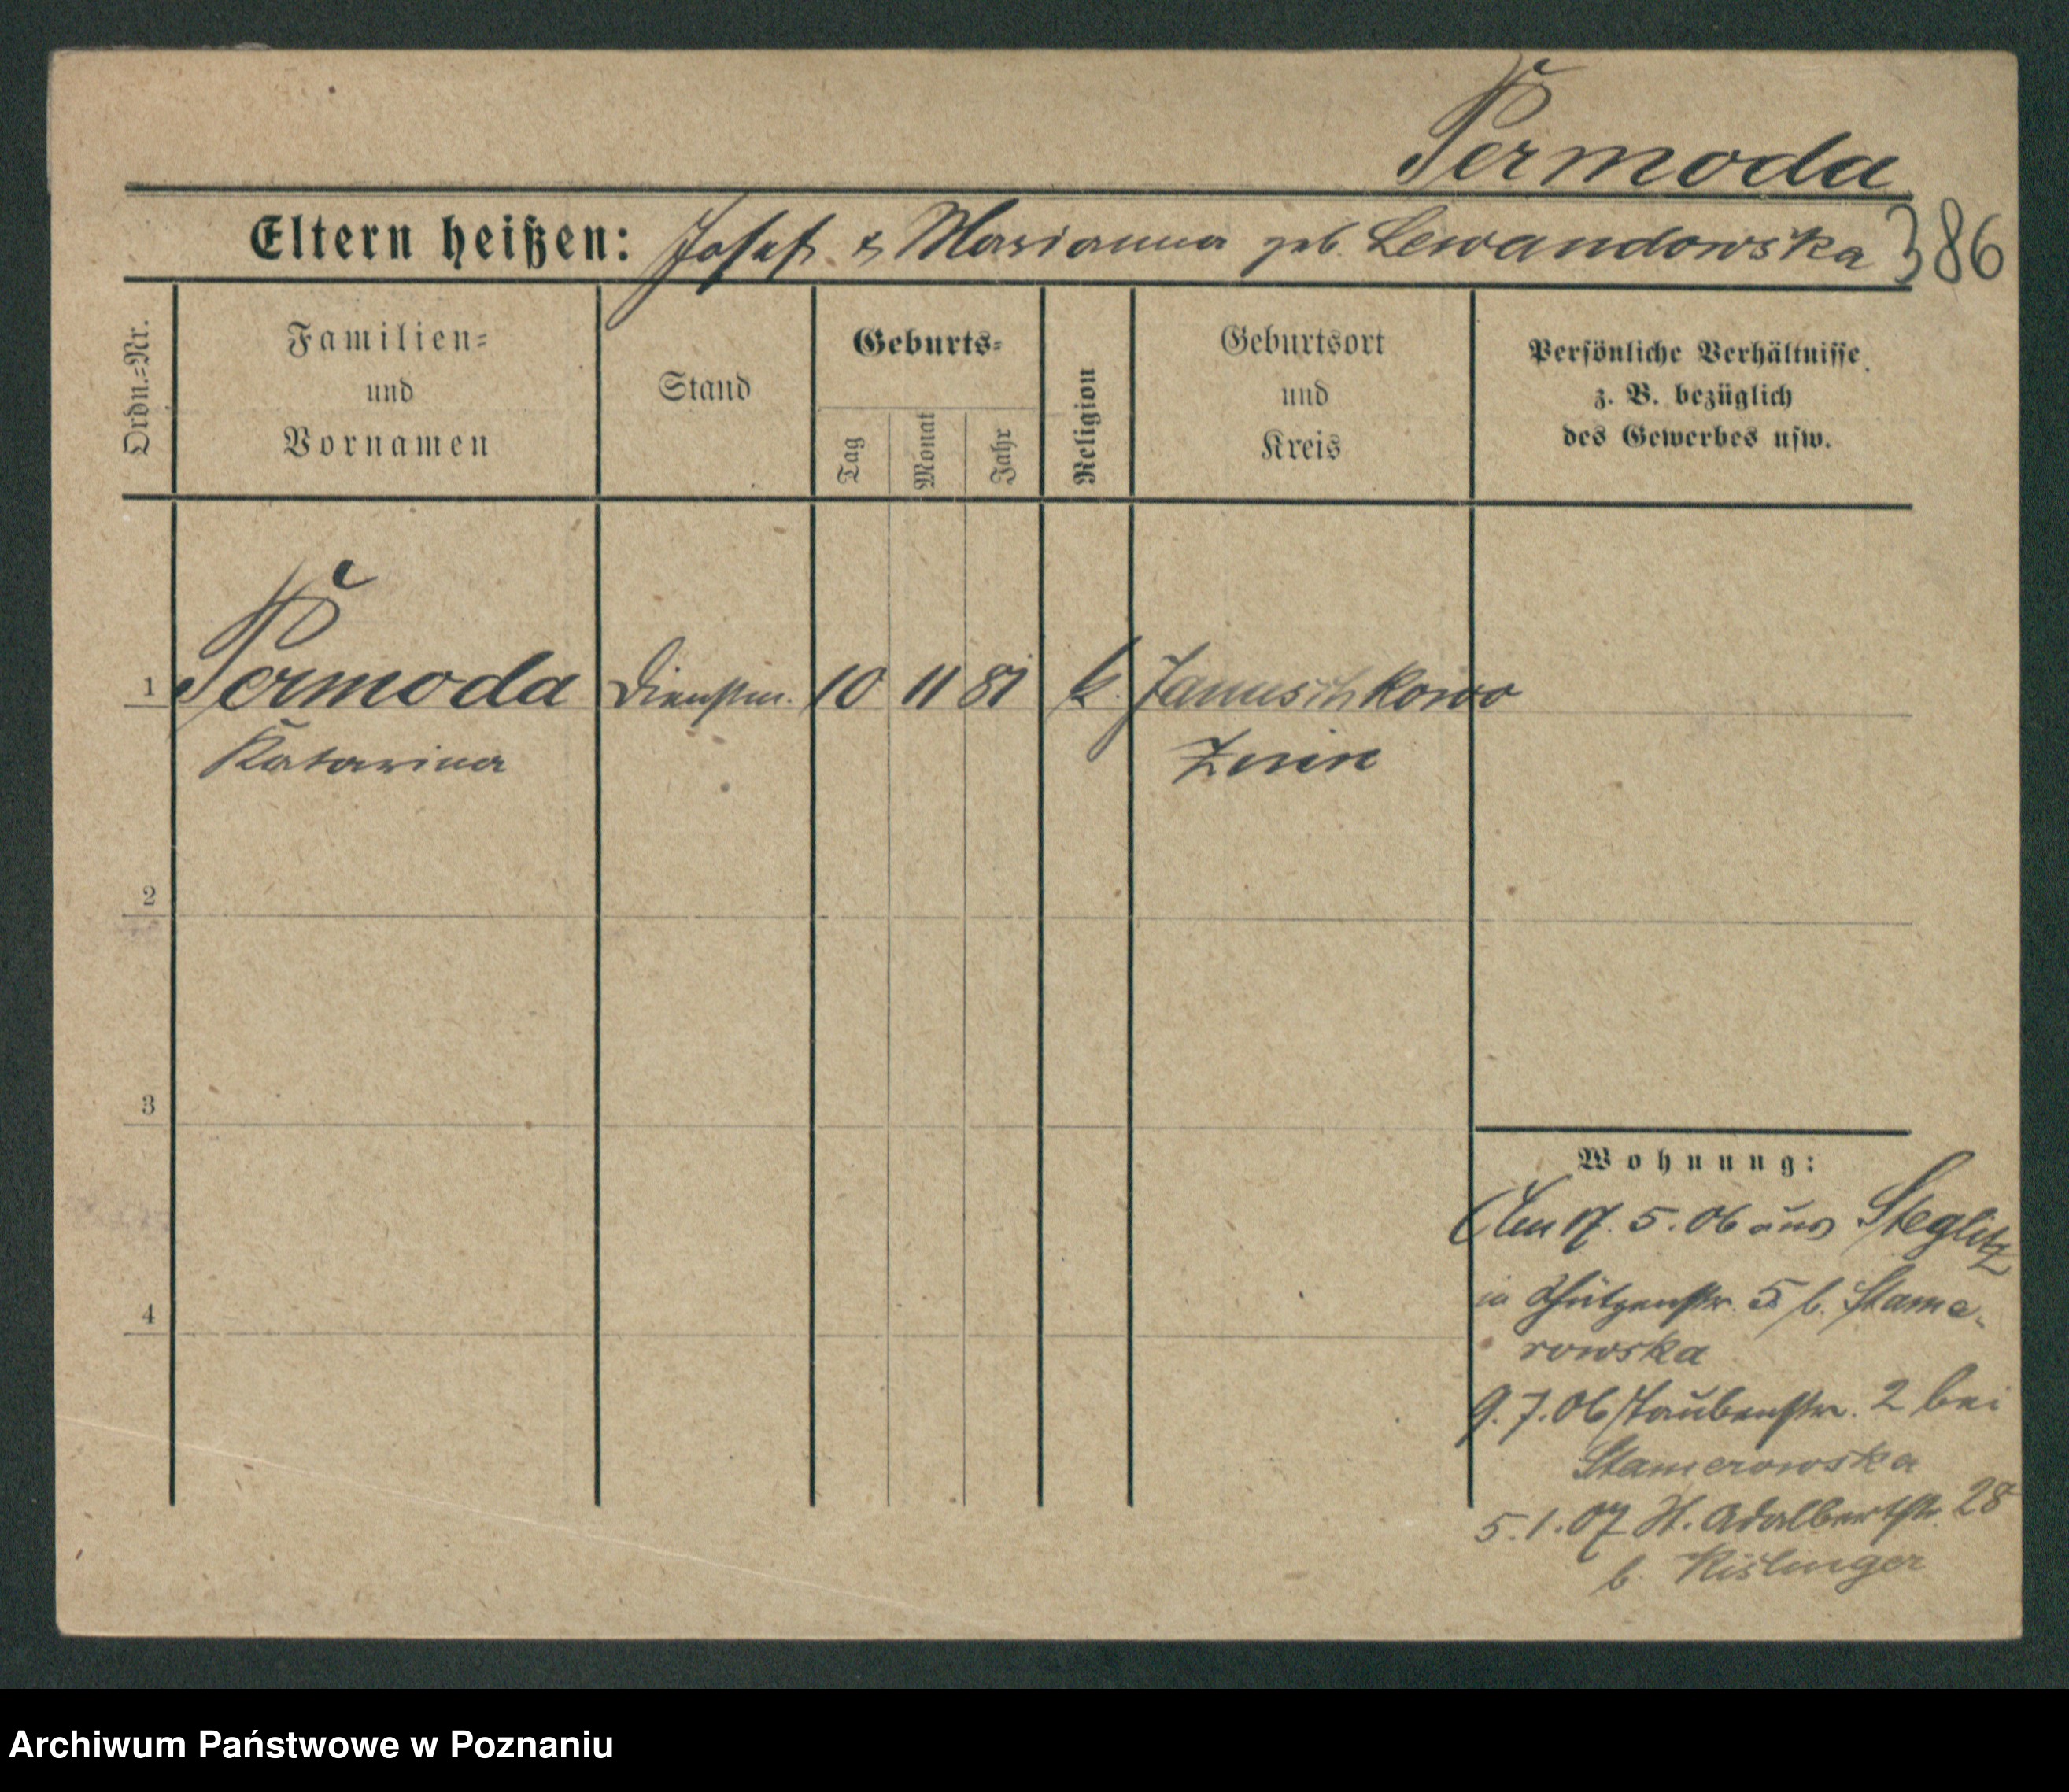 Permoda
Eltern heißen: Josef & Marianna geb. Lewandowska 386
Ordn.-Nr.
Familien- und Vornamen
Stand
Geburts-
Tag
Monat
Jahr
Religion
Geburtsort und Kreis
Persönliche Verhältnisse z. B. bezüglich des Gewerbes usw.
1 Permoda Dienstm. 10 11 81 k. Januschkowo
Katarina Znin
2
3
Wohnung:
17. 5. 06 aus Steglitz
4
in Schützenstr. 5 b. Stame-
rowska
9. 7. 06 Taubenstr. 2 bei
Stamerowska
5. 1. 07 St. Adalbertstr. 28
b. Kislinger
Archiwum Państwowe w Poznaniu